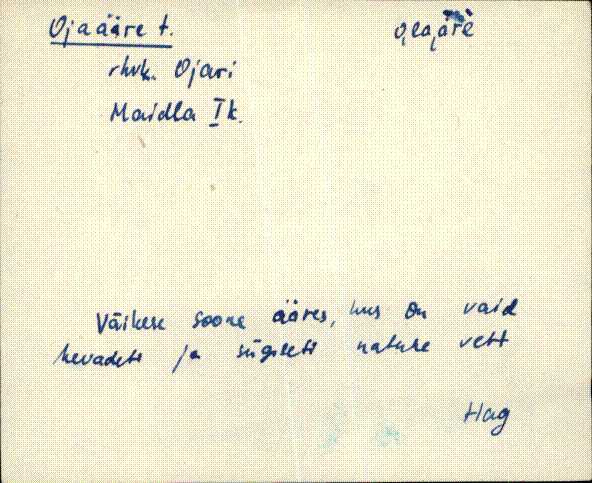 Ojaääre t.
rhvk. Ojari
Maidla I k.
Väikese soone ääres, kus on vaid
kevadeti ja sügiseti natuke vett
Hag